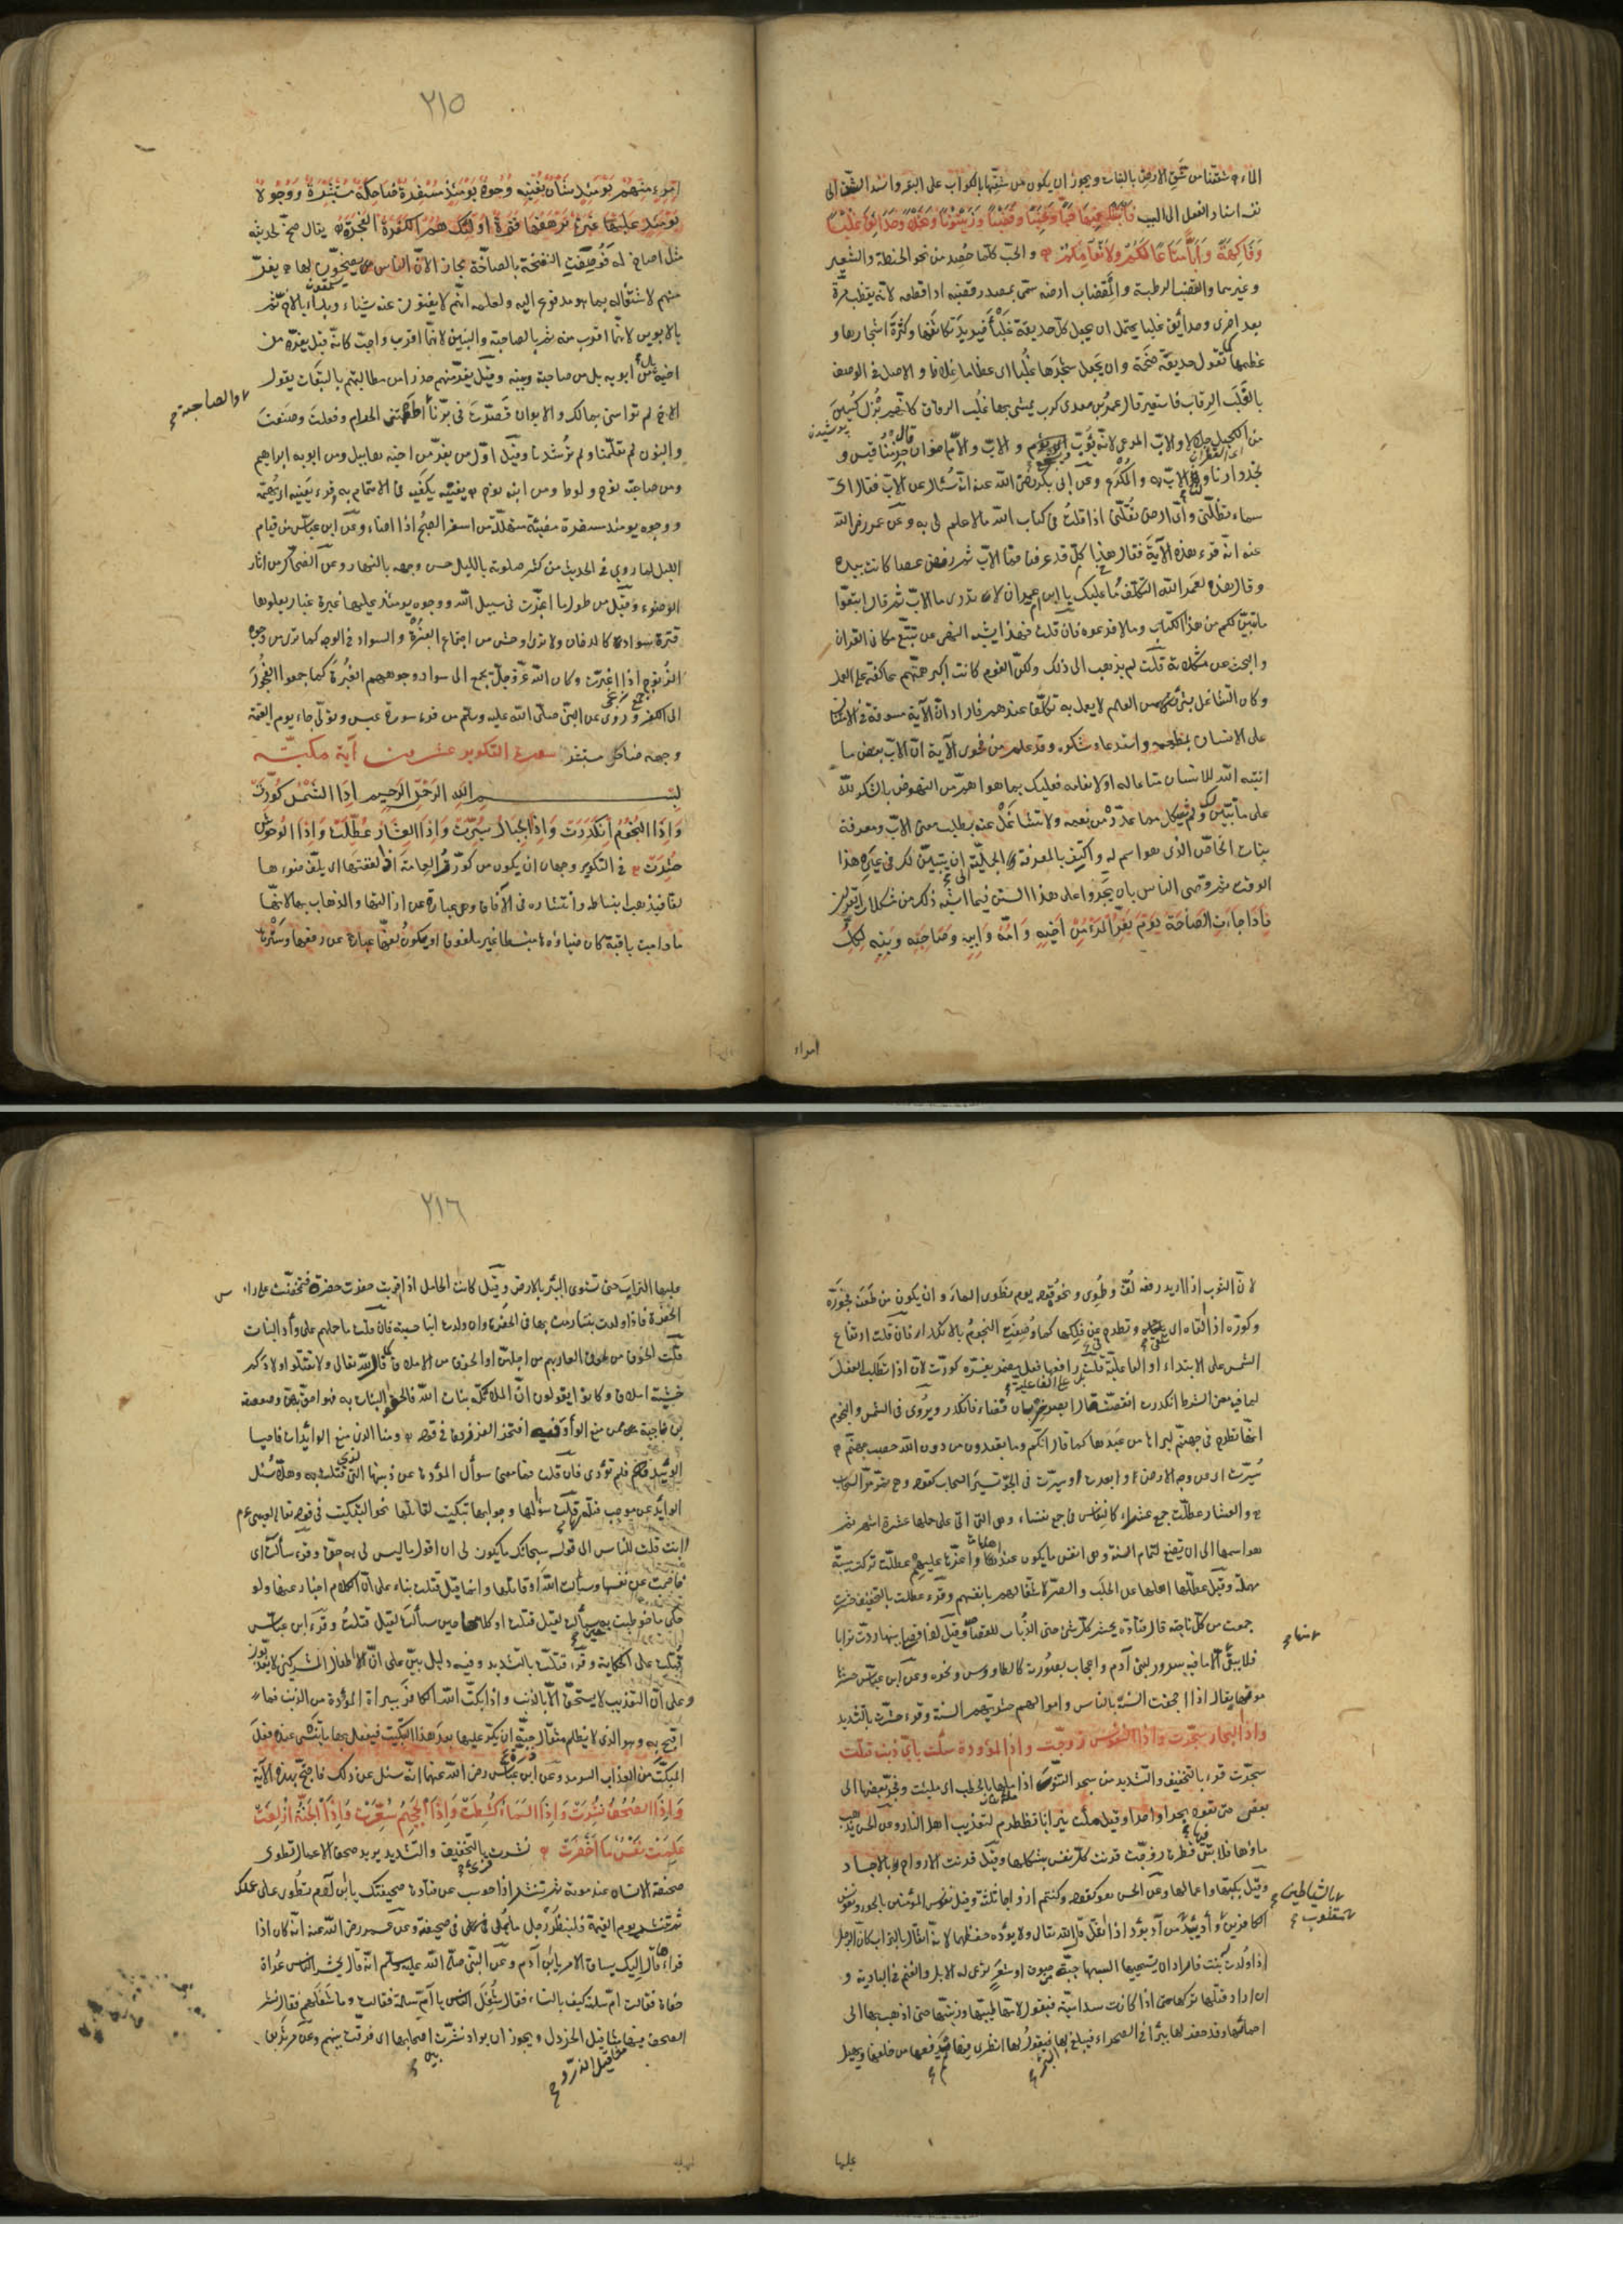 الماء ثم شققنا من شق الارض بالنبات ويجوز ان يكون من شقها بالكراب على البقر واسند الشق الى
نفسه اسناد الفعل الى السبب فَأَنْبَتْنَا فِيهَا حَبًّا وَعِنَبًا وَقَضْبًا وَزَيْتُونًا وَنَخْلًا وَحَدَائِقَ غُلْبًا
وَفَاكِهَةً وَأَبًّا مَتَاعًا لَكُمْ وَلِأَنْعَامِكُمْ والحب كلما حصد من نحو الحنطة والشعير
وغيرهما والقضب الرطبة والمقضاب ارضه سمى بمصدر قضبه اذا قطعه لانه يقضب مرة
بعد اخرى وحدائق غلبا يحتمل ان يجعل كل حديقة غلباء فيريد تكاثفها وكثرة اشجارها و
عظمها كما تقول حديقة ضخمة وان يجعل شجرها غلبا اى عظاما غلاظا والاصل فى الوصف
بالغلب الرقاب فاستعير قال عمرو بن معدى كرب يمشى بها غلب الرقاب كانهم بزل كسين
من الكحيل جلالا والاب المرعى لانه يؤب اى يؤم والاب والام اخوان قال جذمنا قيس و
نجد دارنا ولنا الاب به والمكرع وعن ابى بكر رضى الله عنه انه سئل عن الاب فقال اى
سماء تظلنى واى ارض تقلنى اذا قلت فى كتاب الله ما لا علم لى به وعن عمر رضى الله
عنه انه قرء هذه الآية فقال هذا كل قد عرفنا فما الاب ثم رفض عصا كانت بيده
وقال هذا لعمر الله التكلف وما عليك يا ابن ام عمر ان لا تدرى ما الاب ثم قال اتبعوا
ما تبين لكم من هذا الكتاب وما لا فدعوه فان قلت فهذا يشبه النهى عن تتبع معانى القران
والبحث عن مشكلاته قلت لم يذهب الى ذلك ولكن القوم كانت اكبر همتهم عاكفة على العمل
وكان التشاغل بشئ من العلم لا يعمل به تكلفا عندهم فاراد ان الآية مسوقة فى الامتنان
على الانسان بمطعمه واستدعاء شكره وقد علم من فحوى الآية ان الاب بعض ما
انبته الله للانسان متاعا له او لانعامه فعليك بما هو اهم من النهوض بالشكر لله
على ما تبين لك ولم يشكل مما عدد من نعمه ولا تتشاغل عنه بطلب معنى الاب ومعرفة
النبات الخاص الذى هو اسم له واكتف بالمعرفة الجملية الى ان يتبين لك فى غير هذا
الوقت ثم وصى الناس بان يجروا على هذا السنن فيما اشبه ذلك من مشكلات القران
فَإِذَا جَاءَتِ الصَّاخَّةُ يَوْمَ يَفِرُّ الْمَرْءُ مِنْ أَخِيهِ وَأُمِّهِ وَأَبِيهِ وَصَاحِبَتِهِ وَبَنِيهِ لِكُلِّ
امراء
٢١٥
امْرِئٍ مِنْهُمْ يَوْمَئِذٍ شَأْنٌ يُغْنِيهِ وُجُوهٌ يَوْمَئِذٍ مُسْفِرَةٌ ضَاحِكَةٌ مُسْتَبْشِرَةٌ وَوُجُوهٌ
يَوْمَئِذٍ عَلَيْهَا غَبَرَةٌ تَرْهَقُهَا قَتَرَةٌ أُولَئِكَ هُمُ الْكَفَرَةُ الْفَجَرَةُ يقال صخ لحديثه
مثل اصاخ له فوصفت النفخة بالصاخة مجازا لان الناس يصخون لها يفر
منهم لاشتغاله بما هو مدفوع اليه ولعلمه انهم لا يغنون عنه شياء وبداء بالاخ ثم
بالابوين لانهما اقرب منه ثم بالصاحبة والبنين لانهم اقرب واحب كانه قيل يفر من
اخيه بل من ابويه بل من صاحبته وبنيه وقيل يفر منهم حذرا من مطالبتهم بالتبعات يقول
والصاحبة
الاخ لم تواسنى بمالك والابوان قصرت فى برنا اطعمتنى الحرام وفعلت وصنعت
والبنون لم تعلمنا ولم ترشدنا وقيل اول من يفر من اخيه هابيل ومن ابويه ابراهيم
ومن صاحبته نوح ولوط ومن ابنه نوح يغنيه يكفيه فى الاهتمام به وقرء يعنيه اى يهمه
ووجوه يومئذ مسفرة مضيئة متهللة من اسفر الصبح اذا اضاء وعن ابن عباس من قيام
الليل لما روى فى الحديث من كثر صلوته بالليل حسن وجهه بالنهار وعن الضحاك من اثار
الوضوء وقيل من طول ما اغبرت فى سبيل الله ووجوه يومئذ عليها غبرة غبار يعلوها
قترة سواد كالدخان ولا ترى اوحش من اجتماع الغبرة والسواد فى الوجه كما ترى من وجوه
الزنوج اذا اغبرت وكان الله عز وجل يجمع الى سواد وجوههم الغبرة كما جمعوا الفجور
الى الكفر وروى عن النبى صلى الله عليه وسلم من قرء سورة عبس وتولى جاء يوم القيمة
وجهه ضاحك مستبشر سورة التكوير عشرون آية مكية
بسم الله الرحمن الرحيم إِذَا الشَّمْسُ كُوِّرَتْ
وَإِذَا النُّجُومُ انْكَدَرَتْ وَإِذَا الْجِبَالُ سُيِّرَتْ وَإِذَا الْعِشَارُ عُطِّلَتْ وَإِذَا الْوُحُوشُ
حُشِرَتْ فى التكوير وجهان ان يكون من كورت العمامة اذا لففتها اى يلف ضوءها
لفا فيذهب انبساطه وانتشاره فى الآفاق وهو عبارة عن ازالتها والذهاب بها لانها
ما دامت باقية كان ضياؤها منبسطا غير ملفوف او يكون لفها عبارة عن رفعها وسترها
لان الثوب اذا اريد رفعه لف وطوى ونحوه قوله يوم نطوى السماء وان يكون من طعنه فجوره
وكوره اذا القاه اى تلقى وتطرح عن فلكها كما وصفت النجوم بالانكدار فان قلت ارتفاع
الشمس على الابتداء او الفاعلية قلت بل على الفاعلية رافعها فعل مضمر يفسره كورت لان اذا تطلب الفعل
لما فيه معنى الشرط انكدرت انقضت قال ابصر خربان فضاء فانكدر ويروى فى الشمس والنجوم
انها تطرح فى جهنم ليراها من عبدها كما قال انكم وما تعبدون من دون الله حصب جهنم
سيرت اى عن وجه الارض وابعدت او سيرت فى الجو تسيير السحاب كقوله وهى تمر مر السحاب
والعشار عطلت جمع عشراء كالنفاس فى جمع نفساء وهى التى اتى على حملها عشرة اشهر ثم
هو اسمها الى ان تضع لتمام السنة وهى انفس ما يكون عند اهلها واعزها عليهم عطلت تركت مسيبة
مهملة وقيل عطلها اهلها عن الحلب والصر لاشتغالهم بانفسهم وقرء عطلت بالتخفيف حشرت
جمعت من كل ناحية قال قتادة يحشر كل شئ حتى الذباب للقصاص وقيل اذا قضى بينها ردت ترابا
فلا يبقى الا ما فيه سرور لبنى آدم واعجاب بصورته كالطاووس ونحوه وعن ابن عباس حشرها
موتها يقال اذا اجحفت السنة بالناس واموالهم حشرتهم السنة وقرء حشرت بالتشديد
وَإِذَا الْبِحَارُ سُجِّرَتْ وَإِذَا النُّفُوسُ زُوِّجَتْ وَإِذَا الْمَوْؤُودَةُ سُئِلَتْ بِأَيِّ ذَنْبٍ قُتِلَتْ
سجرت قرء بالتخفيف والتشديد من سجر التنور اذا ملاها بالحطب اى ملئت وفجر بعضها الى
بعض حتى تعود بحرا واحدا وقيل ملئت نيرانا تضطرم لتعذيب اهل النار وعن الحسن يذهب
ماؤها فلا تبقى فيها قطرة زوجت قرنت كل نفس بشكلها وقيل قرنت الارواح بالاجساد
وقيل بكتبها واعمالها وعن الحسن هو كقوله وكنتم ازواجا ثلثة وقيل نفوس المؤمنين بالحور ونفوس
بالشياطين
الكافرين وأد يئد مقلوب من آد يؤد اذا اثقل قال الله تعالى ولا يؤده حفظهما لانه اثقال بالتراب كان الرجل
اذا ولدت له بنت فاراد ان يستحييها البسها جبة من صوف او شعر ترعى له الابل والغنم فى البادية و
ان اراد قتلها تركها حتى اذا كانت سداسية فيقول لامها طيبيها وزينيها حتى اذهب بها الى
احمائها وقد حفر لها بئرا فى الصحراء فيبلغ بها البئر فيقول لها انظرى فيها ثم يدفعها من خلفها ويهيل
عليها
٢١٦
عليها التراب حتى تستوى البئر بالارض وقيل كانت الحامل اذا قربت حفرت حفرة فتمخضت على راس
الحفرة فاذا ولدت بنتا رمت بها فى الحفرة وان ولدت ابنا حبسته فان قلت ما حملهم على وأد البنات
قلت الخوف من لحوق العار بهم من اجلهن او الخوف من الاملاق كما قال الله تعالى ولا تقتلوا اولادكم
خشية املاق وكانوا يقولون ان الملائكة بنات الله فالحقوا البنات به فهو احق بهن وصعصعة
بن ناجية ممن منع الوأد وفيه افتخر الفرزدق فى قوله ومنا الذى منع الوائدات فاحيا
الوئيد فلم تؤدى فان قلت فما معنى سؤال المؤدة عن ذنبها الذى قتلت به وهلا سئل
الوائد عن موجب قتله لها قلت سؤالها وجوابها تبكيت لقاتلها نحو التبكيت فى قوله تعالى لعيسى عم
أانت قلت للناس الى قوله سبحانك ما يكون لى ان اقول ما ليس لى به حق وقرء سألت اى
خاصمت عن نفسها وسألت الله او قاتلها وانما قيل قتلت بناء على ان الكلام اخبار عنها ولو
حكى ما خوطبت به حين سألت لقيل قتلت او كلامها حين سألت لقيل قتلت وقرء ابن عباس
قتلت على الحكاية وقرء قتلت بالتشديد وفيه دليل بين على ان الاطفال المشركين لا يعذبون
وعلى ان التعذيب لا يستحق الا بالذنب واذا بكت الله الكافر ببراءة المؤدة من الذنب فما
اقبح به وهو الذى لا يظلم مثقال حبة ان يكر عليها بعد هذا التبكيت فيفعل بها ما تنسى عنده فعل
المبكت من العذاب السرمد وعن ابن عباس رضى الله عنهما انه سئل عن ذلك فاحتج بهذه الآية
وَإِذَا الصُّحُفُ نُشِرَتْ وَإِذَا السَّمَاءُ كُشِطَتْ وَإِذَا الْجَحِيمُ سُعِّرَتْ وَإِذَا الْجَنَّةُ أُزْلِفَتْ
عَلِمَتْ نَفْسٌ مَا أَحْضَرَتْ نشرت بالتخفيف والتشديد يريد صحف الاعمال تطوى
صحيفة الانسان عند موته ثم تنشر اذا حوسب عن قتادة صحيفتك يا ابن آدم تطوى على عملك
ثم تنشر يوم القيمة فلينظر رجل ما يملى فى صحيفته وعن عمر رضى الله عنه انه كان اذا
قراءها قال اليك يساق الامر يا ابن آدم وعن النبى صلى الله عليه وسلم انه قال يحشر الناس عراة
حفاة فقالت ام سلمة كيف بالنساء فقال شغل الناس يا ام سلمة قالت وما شغلهم فقال نشر
الصحف فيها مثاقيل الذر ومثاقيل الخردل ويجوز ان يراد نشرت بين اصحابها اى فرقت بينهم وعن مرثد بن